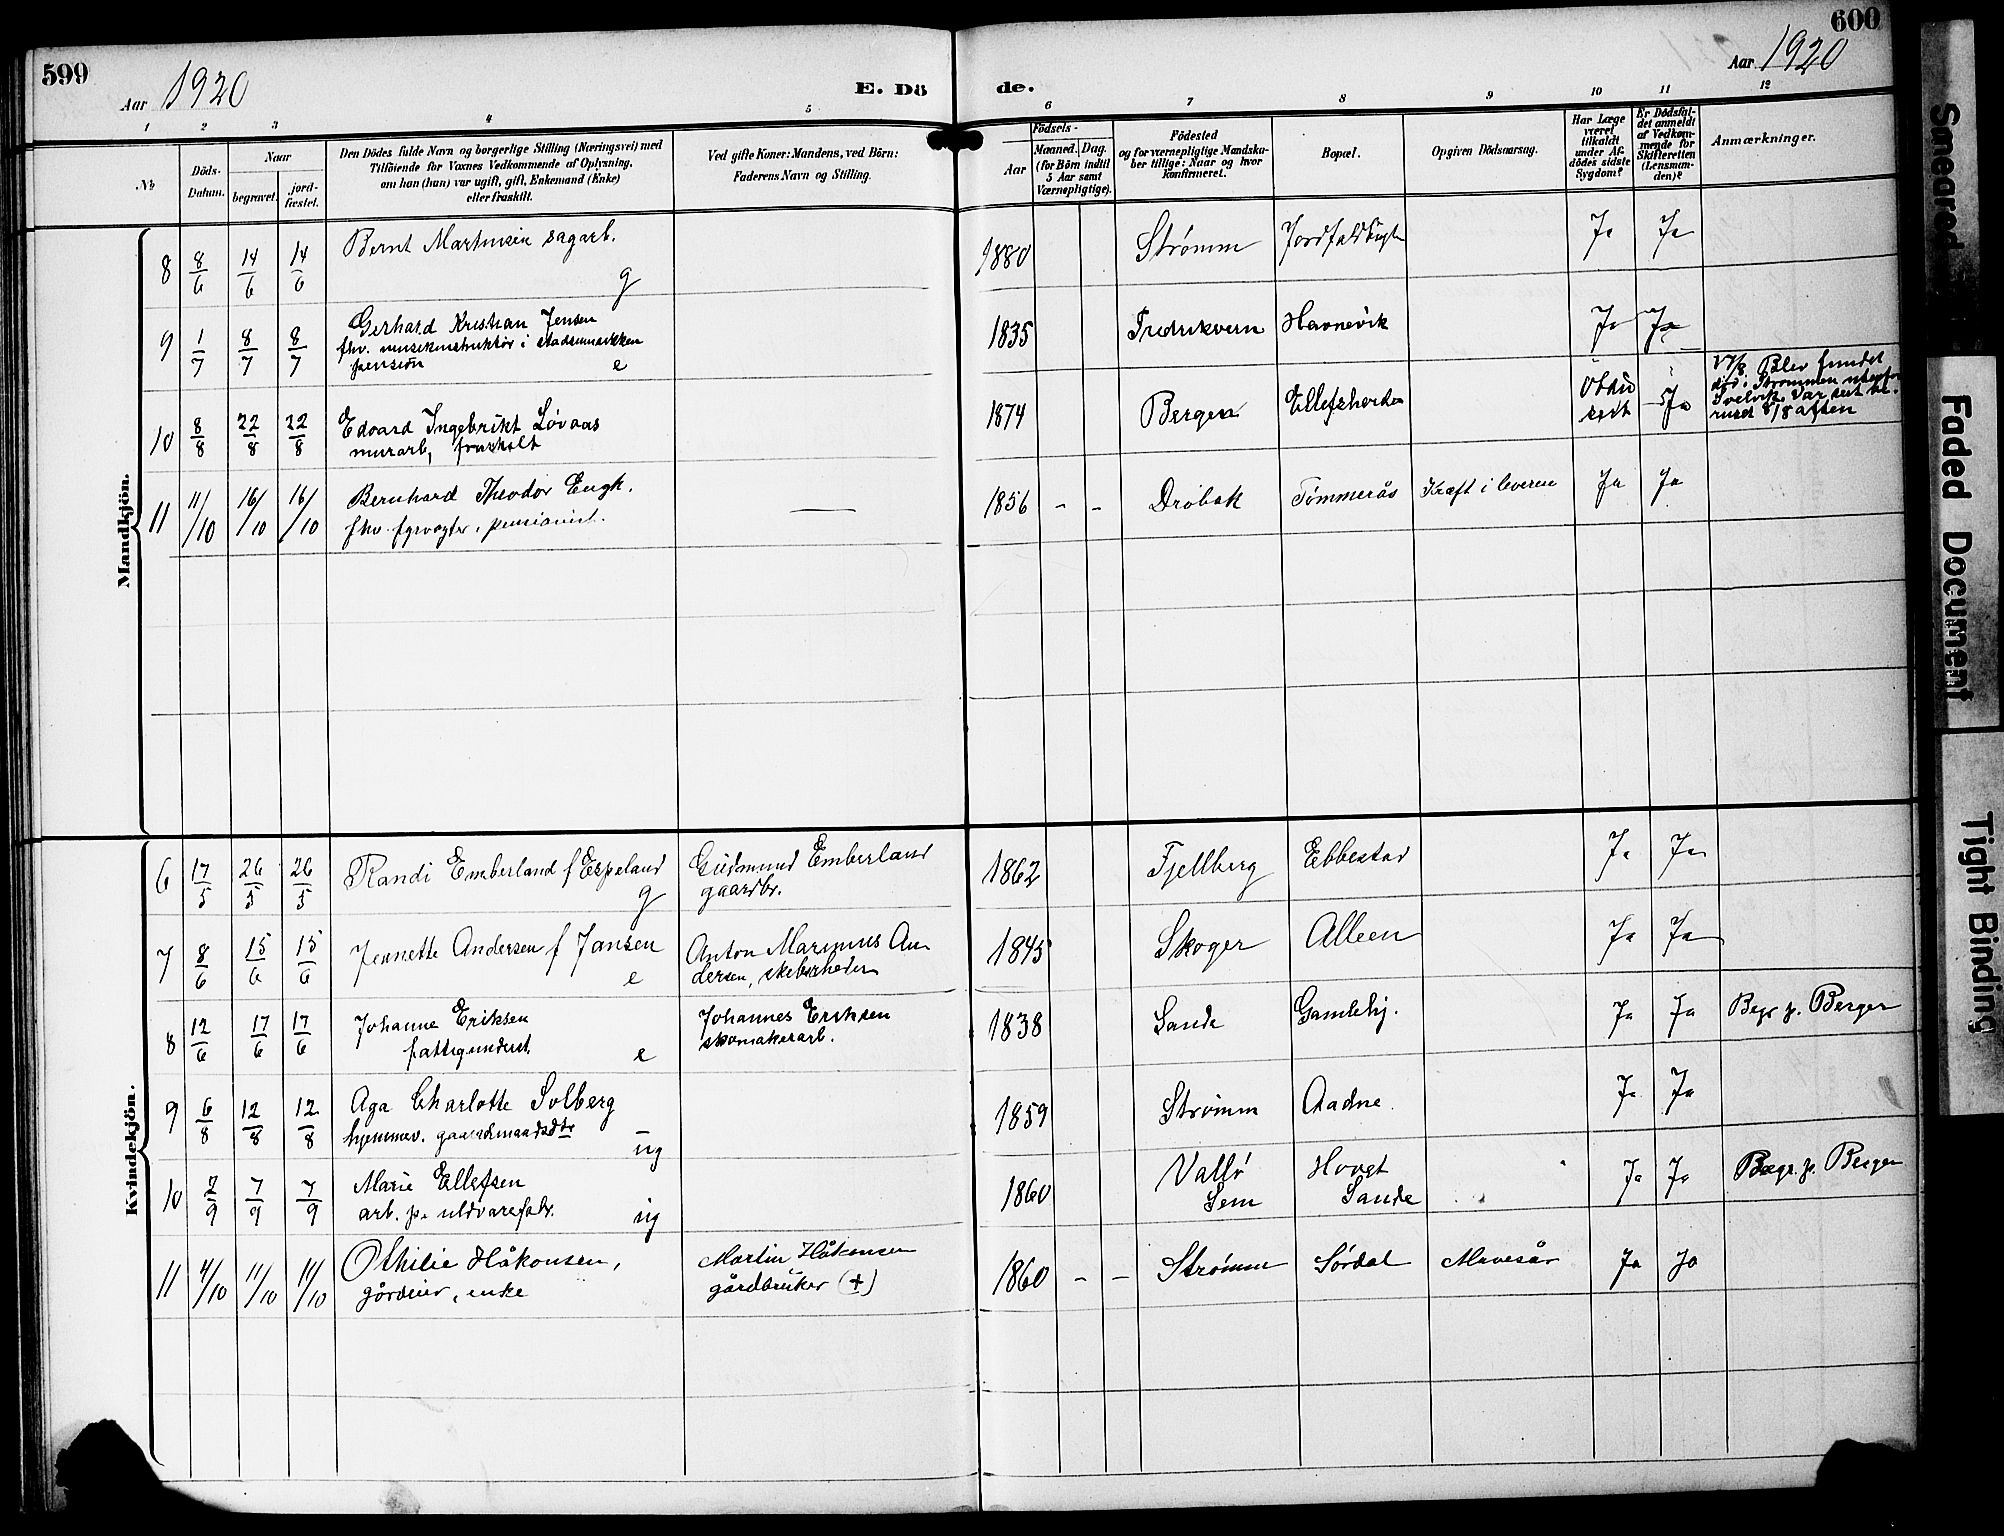 599
Aar 1920
E. Dö
de.
Aar 1920
600
1 2 3 4 5 6 7 8 9 10 11 12
No
Döds-
Datum.
Naar
begravet.
jord-
fæstet.
Den Dödes fulde Navn og borgerlige Stilling (Næringsvei) med
Tilföiende for Voxnes Vedkommende af Oplysning,
om han (hun) var ugift, gift, Enkemand (Enke)
eller fraskilt.
Ved gifte Koner: Mandens, ved Börn:
Faderens Navn og Stilling.
Födsels-
Aar
Maaned. Dag.
(for Börn indtil
5 Aar samt
Værnepligtige).
Födested
og for værnepligtige Mandska-
ber tillige: Naar og hvor
konfirmeret.
Bopæl.
Opgiven Dödsaarsag.
Har Læge
været
tilkaldt
under Af-
dödes sidste
Sygdom?
Er Dödsfal-
det anmeldt
af Vedkom-
mende for
Skifteretten
(Lensman-
den)?
Anmærkninger.
Mandkjön.
8 8/6 14/6 14/6 Bernt Martinsen sagarb. g 1880 Strømm Ja Ja
9 1/7 8/7 8/7 Gerhard Kristian Jensen
fhv. i
pension e 1835 Fredrikvern Havnevik Ja Ja
10 8/8 22/8 22/8 Edvard Ingebrikt Løvaas
murarb, fraskilt 1874 Bergen Obdu
sert Ja
17/8 Blev fundet
død i Strømmen utenfor
Svelvik. Var sist be-
ruset 8/8 aften
11 11/10 16/10 16/10 Bernhard Theodor Engh.
fhv. fyrvogter, pensionist. — 1856 - - Drøbak Tømmerås Kræft i leveren Ja Ja
Kvindekjön.
6 17/5 26/5 26/5 Randi Emberland f Espeland g Gudmund Emberland
gaardbr. 1862 Fjellberg Ebbestad Ja Ja
7 8/6 15/6 15/6 Jennette Andersen f Jansen e Anton Marinius An-
dersen, skibsreder 1845 Skoger Alleen Ja Ja
8 12/6 17/6 17/6 Johanne Eriksen
fattigunderst. e Johannes Eriksen
skomakerarb. 1838 Sande Gamlehj. Ja Ja Begr p. Berger
9 6/8 12/8 12/8 Aga Charlotte Solberg
hjemmev. gaardmandsdtr ug 1859 Strømm Aadne. Ja Ja
10 2/9 7/9 7/9 Marie Ellefsen
arb. p. uldvarefabr. ug 1860 Vallø
Sem Hovet
Sande Ja Ja Begr. p. Berger
11 4/10 11/10 11/10 Othilie Håkonsen,
gårdeier, enke Martin Håkonsen
gårdbruker (+) 1860 - - Strømm Sørdal Mavesår Ja Ja
Smeared
Faded Document
Tight Binding